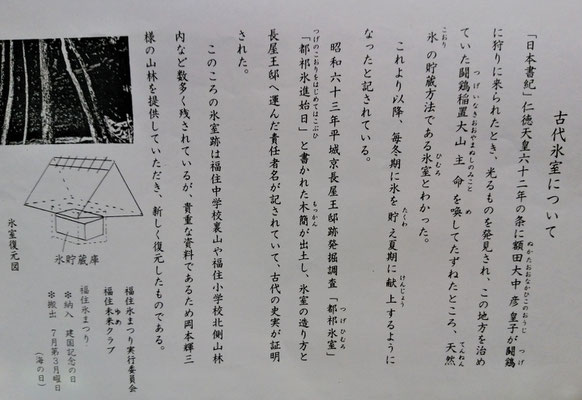 古代氷室について
「日本書紀」仁徳天皇六十二年の条に額田大中彦皇子が闘鶏
に狩りに来られたとき、光るものを発見され、この地方を治め
ていた闘鶏稲置大山主命を喚してたずねたところ、天然
氷の貯蔵方法である氷室とわかった。
これより以降、毎冬期に氷を貯え夏期に献上するように
なったと記されている。
昭和六十三年平城京長屋王邸跡発掘調査「都祁氷室」
「都祁氷進始日」と書かれた木簡が出土し、氷室の造り方と
長屋王邸へ運んだ責任者名が記されていて、古代の史実が証明
された。
このころの氷室跡は福住中学校裏山や福住小学校北側山林
内など数多く残されているが、貴重な資料であるため岡本輝三
様の山林を提供していただき、新しく復元したものである。
福住氷まつり実行委員会
福住未来クラブ
福住氷まつり
＊納入 建国記念の日
＊搬出 7月第3月曜日
(海の日)
氷貯蔵庫
氷室復元図